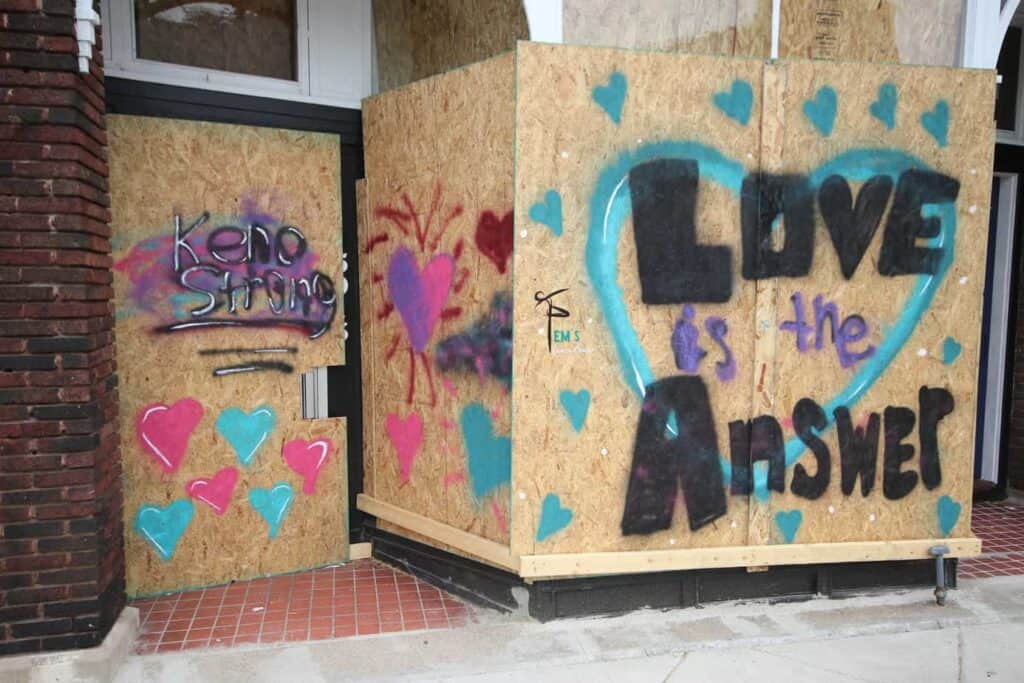 Keno
Strong
EMS
Love
is the
Answer